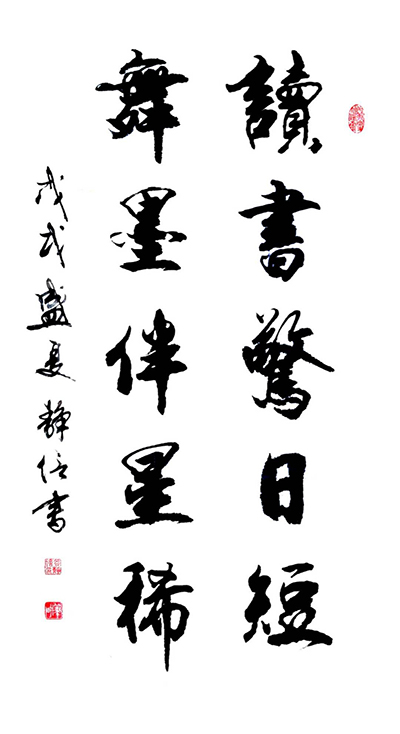 讀書驚日短
舞墨伴星稀
戊戌盛夏靜信書